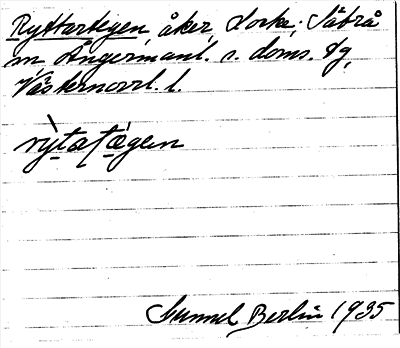 Ryttartegen, åker, Locke; Säbrå
sn, Ångermanl. s. doms. dg,
Västernorrl. l.
rỳtatǽgen
Gunnel Berlin 1935